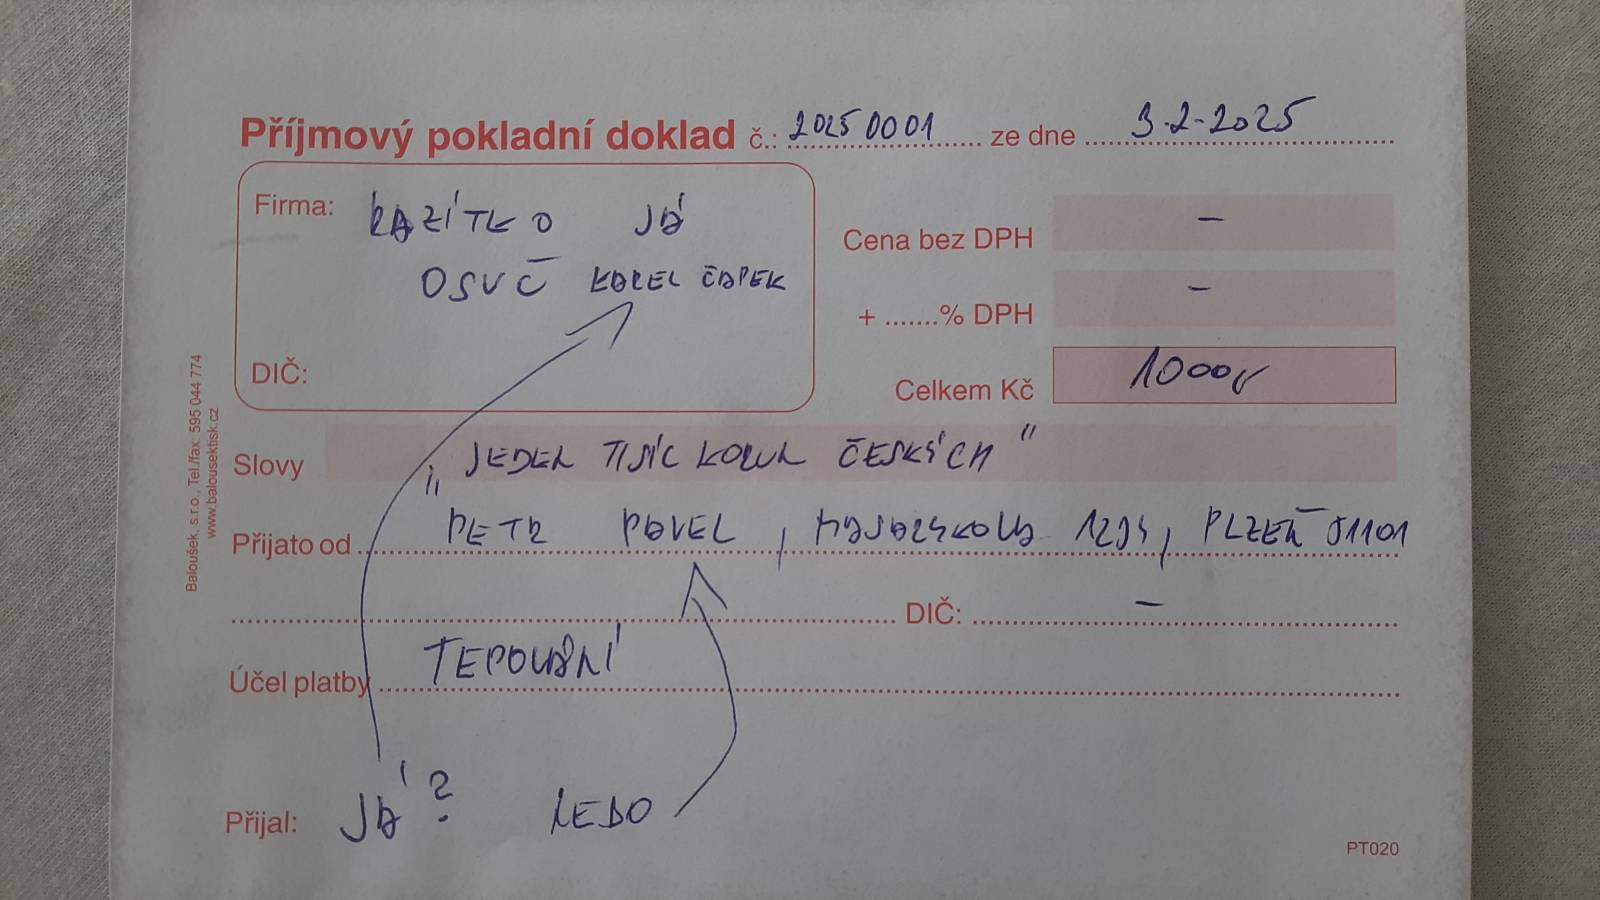 Příjmový pokladní doklad č.: 20250001 ze dne 3.2.2025
Firma: RAZÍTKO JÁ
OSVČ KAREL ČAPEK
DIČ:
Cena bez DPH –
+ .......% DPH –
Celkem Kč 1000,-
Slovy „JEDEN TISÍC KORUN ČESKÝCH"
Přijato od PETR PAVEL, MASARYKOVA 1234, PLZEŇ 31101
DIČ: –
Účel platby TEPOVÁNÍ
Přijal: JÁ? NEBO
PT020
Baloušek, s.r.o., Tel./fax: 595 044 774
www.balousektisk.cz